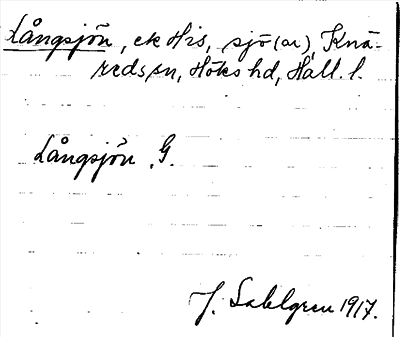 Långsjön, ek His, sjö(ar), Knä-
reds sn, Höks hd, Hall. l.
Långsjön G.
J. Sahlgren 1917.